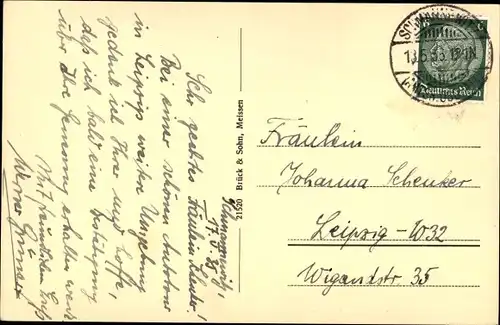 Sehr geehrtes Fräulein Schenker!
Bei einer schönen Autotour
in Leipzigs weitere Umgebung
gedenke ich Ihrer und hoffe,
daß ich bald eine Bestätigung
über Ihre Genesung erhalten werde.
Mit freundlichen Gruß
Werner
17. 6. 35
21520 Brück & Sohn, Meissen
Deutsches Reich
Fräulein
Johanna Schenker
Leipzig-W32
Wigandstr. 35